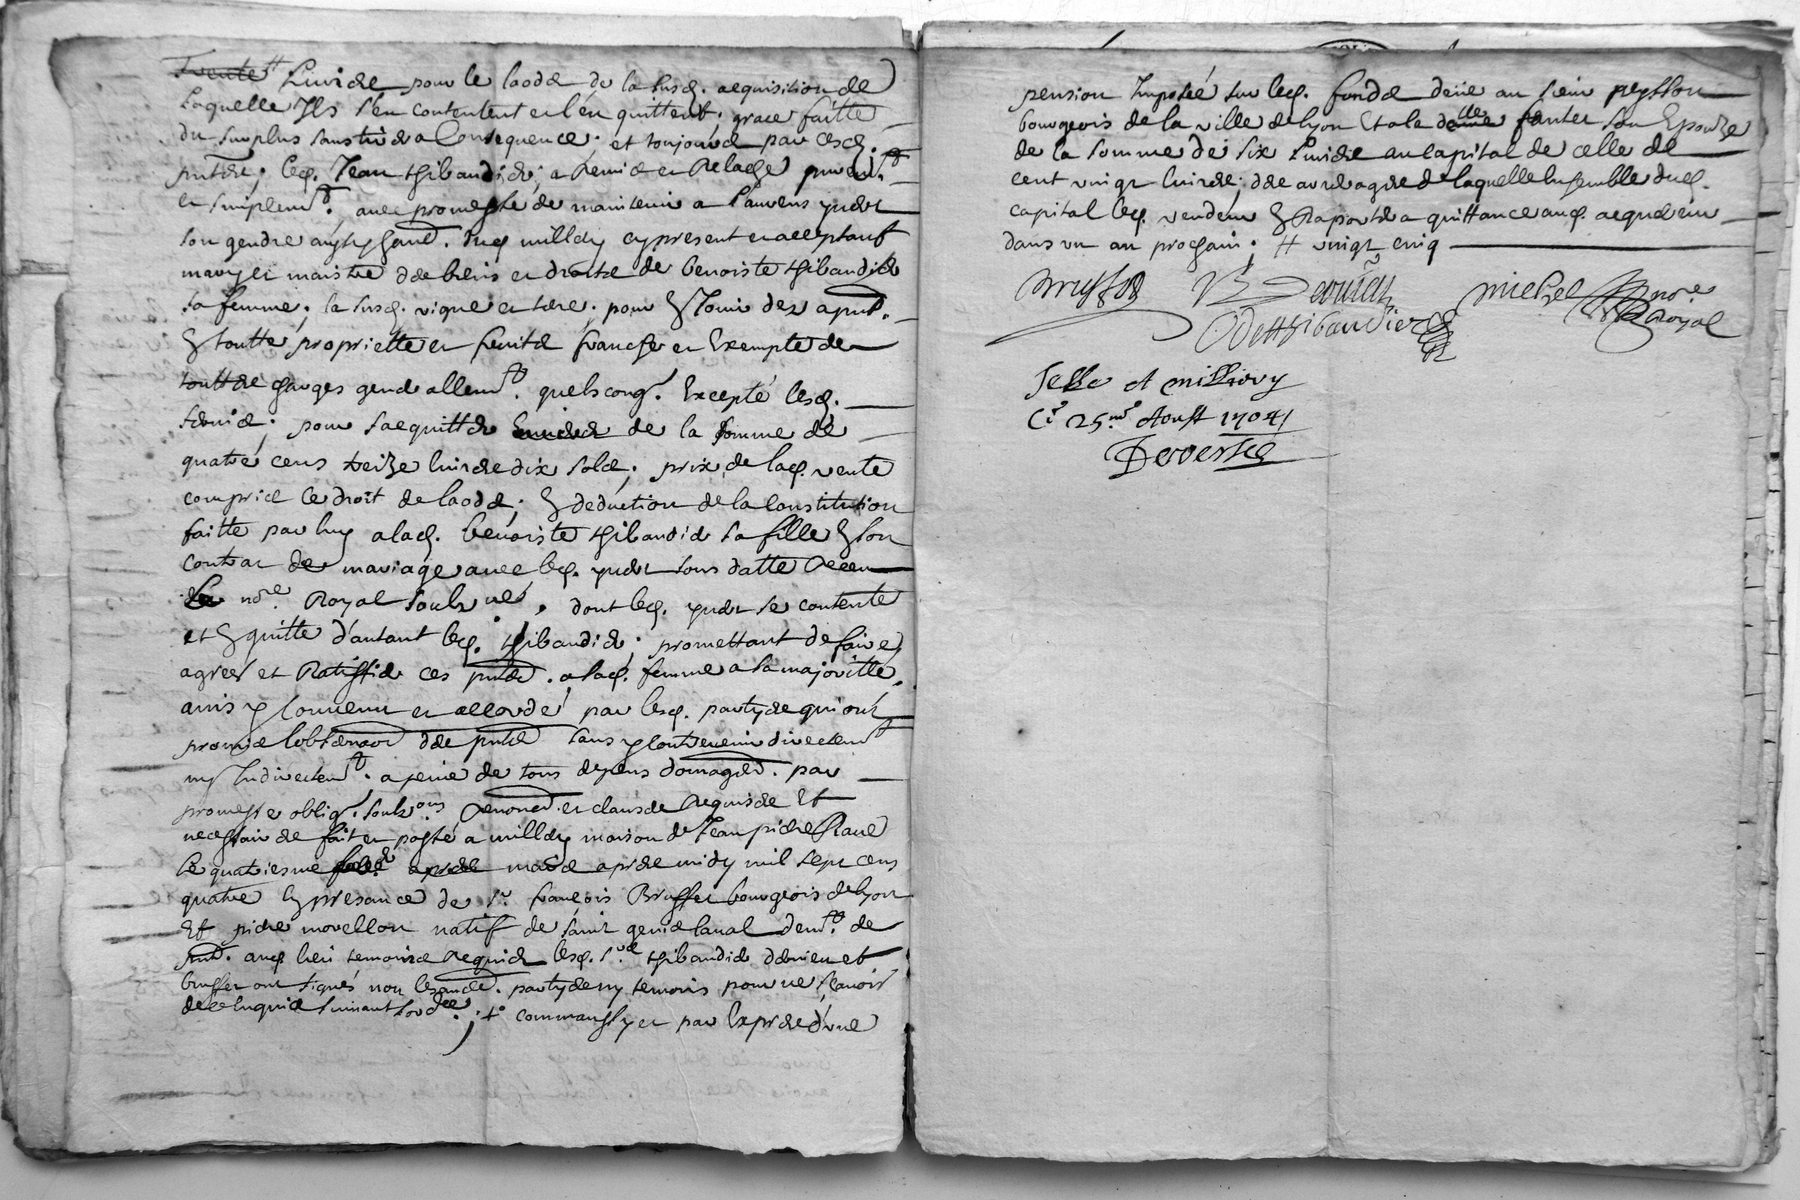 trente # Livres pour le laods de la susd. acquisition de
Laquelle Ils s'en contentent et l'en quittent. grace faitte
du surplus sans tirer a Consequence. et toujours par cesd.
pntes, led. Jean thibaudier, a Remis et Relaché purem.t
et simplem.t avec promesse de maintenir a Laurens
son gendre dud millery cy present et acceptant
mary et maistre des biens et droits de benoiste thibaudier
sa femme, la susd. vigne et terre. pour En Jouir des apnt.
En toutte proprietté et fruits franche et Exempte de
touttes charges generallem.t quelsconq. Excepté lesd.
servis, pour s'acquitter de la somme de
quatre cens treize livres dix sols, prix de lad. vente
compris ce droit de laods, En deduction de la Constitution
faitte par luy a lad. benoiste thibaudier sa fille En son
contrat de mariage avec led. sous datte Receu
no.re Royal soub.né, dont led. se contente
et En quitte d'autant led. thibaudier, promettant de faire
agreer et Ratiffier ces pntes. a lad. femme a sa majoritté,
ainsy Convenu et accordé par lesd. partyes qui ont
promis lobserver des pntes sans y Contrevenir directem.t
ny Indirectem.t a peine de tous depens domages. par
promesse oblig. soub.ons Renonc. et clauses Requises Et
necessaires fait et passé a millery maison de Jean pierre
le quatriesme mars apres midy mil sept cens
quatre En presance de s.r françois Brusset bourgeois de lyon
Et pierre morellon natif de saint genis laval dem.t de
pnt. aud. lieu temoins Requis lesd. s.rs thibaudier et
brusset ont signés non lesautres. partyes ny temoins pour ne scavoir
de ce Enquis suivant lord.ce, +° comm aussy et par Exprés d'une
pension Imposée sur led. fonds deüe au sieur peysson
bourgeois de la ville de lyon Et a la d.lle son Epouze
de la somme de six Livres au capital de celle de
cent vingt livres, des arrerages de laquelle Ensemble dud.
capital led. vendeur En Raportera quittance aud. acquereur
dans un an prochain, # vingt cinq
brusset
thibaudier
michel no.re Royal
Sellé A milliery
Ce 25.me Aoust 1704